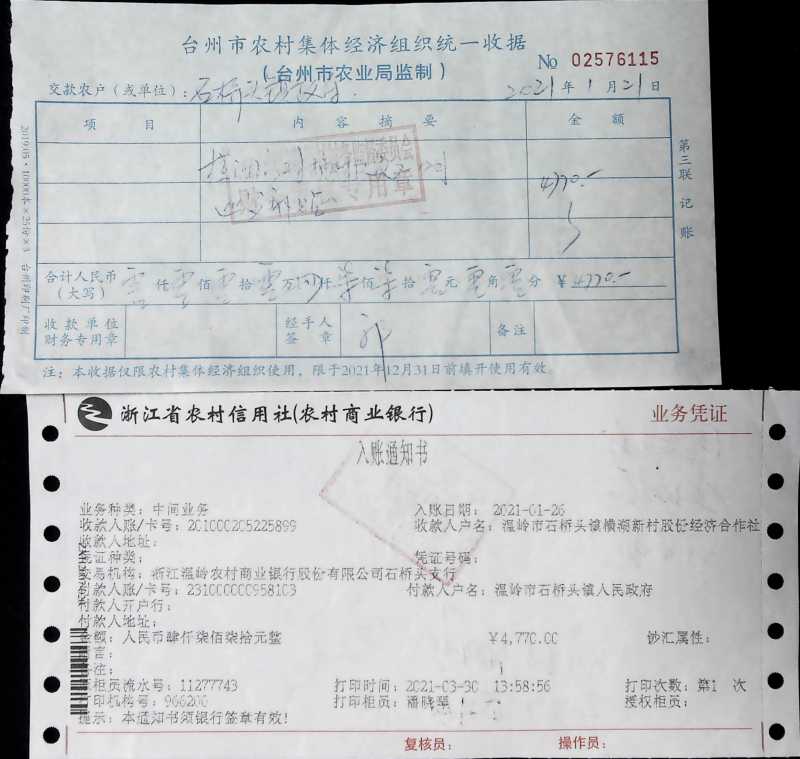 台州市农村集体经济组织统一收据
(台州市农业局监制)
No 02576115
交款农户(或单位): 石桥头镇政府 2021年1月21日
项目 内容摘要 金额
4770.-
合计人民币(大写) 零仟零佰零拾零万肆仟柒佰柒拾零元零角零分 ¥4770.-
收款单位财务专用章 经手人签章 备注
注:本收据仅限农村集体经济组织使用,限于2021年12月31日前填开使用有效。
第三联 记账
2019.05·10000本×25份×3 台州
浙江省农村信用社(农村商业银行) 业务凭证
入账通知书
业务种类:中间业务 入账日期: 2021-01-26
收款人账/卡号:201000205225899 收款人户名:温岭市石桥头镇横湖新村股份经济合作社
收款人地址:
凭证种类: 凭证号码:
交易机构:浙江温岭农村商业银行股份有限公司石桥头支行
付款人账/卡号:231000000958103 付款人户名:温岭市石桥头镇人民政府
付款人开户行:
付款人地址:
金额:人民币肆仟柒佰柒拾元整 ¥4,770.00 钞汇属性:
柜员流水号:11277743 打印时间:2021-03-30 13:58:56 打印次数:第1 次
打印机构号:966200 打印柜员:潘晓翠 授权柜员:
提示:本通知书须银行签章有效!
复核员: 操作员: